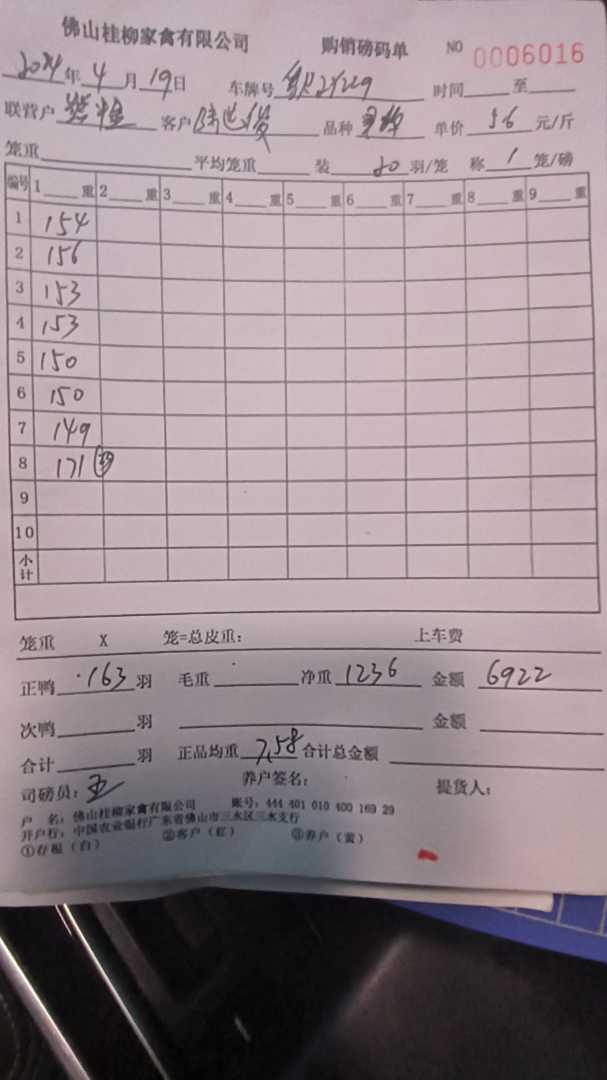 佛山桂柳家禽有限公司 购销磅码单 NO 0006016
2024年4月19日 车牌号 时间 至
联营户 客户 品种 单价 56 元/斤
笼重 平均笼重 装 20 羽/笼 称 1 笼/磅
编号 1 重 2 重 3 重 4 重 5 重 6 重 7 重 8 重 9 重
1 154
2 156
3 153
4 153
5 150
6 150
7 149
8 171
9
10
小计
笼重 X 笼=总皮重: 上车费
正鸭 163 羽 毛重 净重 1236 金额 6922
次鸭 羽 金额
合计 羽 正品均重 7.58 合计总金额
司磅员: 王 养户签名: 提货人:
户 名: 佛山桂柳家禽有限公司 账号: 444 401 010 400 169 29
开户行: 中国农业银行广东省佛山市三水区三水支行
①存根(白) ②客户(红) ③养户(黄)